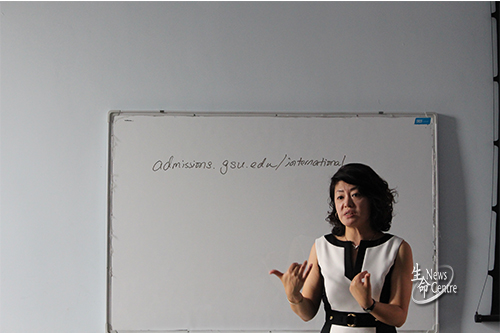 admissions.gsu.edu/international
生命 News Centre